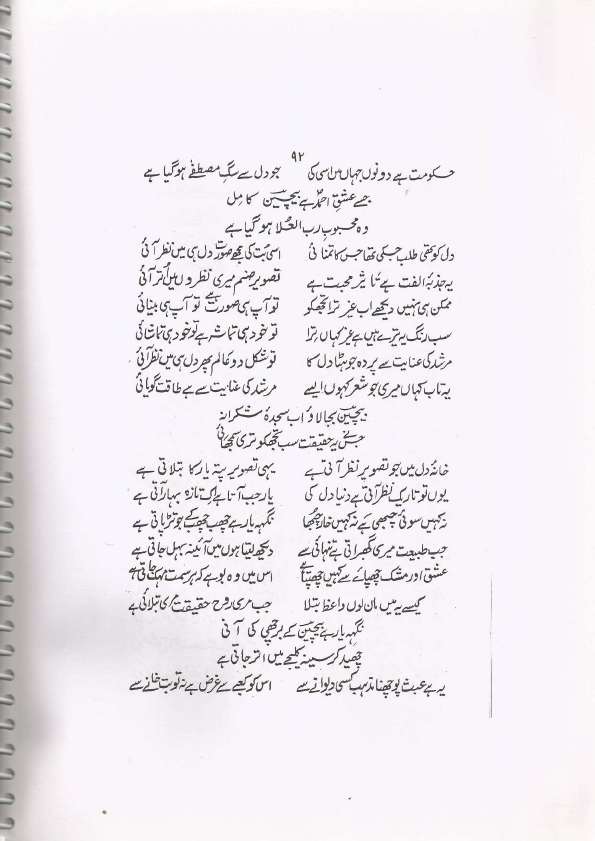 ۹۲
حکومت ہے دونوں جہاں میں اسی کی جو دل سے سگِ مصطفےٰ ہو گیا ہے
جسے عشقِ احمدؐ ہے بیچینؔ کامل
وہ محبوبِ رب العُلا ہو گیا ہے
دل کو تھی طلب جسکی تھا جس کا تمنائی اسی بُت کی مجھے صورت دل ہی میں نظر آئی
یہ جذبۂ الفت ہے تاثیرِ محبت ہے تصویرِ صنم میری نظروں میں اُتر آئی
ممکن ہی نہیں دیکھے اب غیر ترا تجھکو تو آپ ہی صورت ہے تو آپ ہی بینائی
سب رنگ یہ تیرے ہیں ہے غیر کہاں تِرا تو خود ہی تماشہ ہے تو خود ہی تماشائی
مرشد کی عنایت سے پردہ جو ہٹا دل کا تو شکل دو عالم پھر دل ہی میں نظر آئی
یہ تاب کہاں میری جو شعر کہوں ایسے مرشد کی عنایت سے ہے طاقت گویائی
بیچینؔ بجا لاؤ اب سجدۂ شکرانہ
جس نے یہ حقیقت سب تجھکو تری سمجھائی
خانۂ دل میں جو تصویر نظر آتی ہے یہی تصویر پتہ یار کا بتلاتی ہے
یوں تو تاریک نظر آتی ہے دنیا دل کی یار جب آتا ہے اِک تازہ بہار آتی ہے
نہ کہیں سوئی چبھی ہے نہ کہیں خار چبھا نگہہِ یار ہے چھپ چھپ کے جو تڑپاتی ہے
جب طبیعت میری گھبراتی ہے تنہائی سے دیکھ لیتا ہوں میں آئینہ بہل جاتی ہے
عشق اور مشک چھپائے سے کہیں چھپتا ہے اس میں وہ بو ہے کہ ہر سمت مہک جاتی ہے
کیسے یہ میں مان لوں واعظ بتلا جب مری روح حقیقت مری بتلاتی ہے
نگہہِ یار ہے بیچینؔ کے برچھی کی آنی
چھید کر سینہ کلیجے میں اتر جاتی ہے
یہ ہے عبث پوچھنا مذہب کسی دیوانے سے اس کو کعبے سے غرض ہے نہ تو بت خانے سے